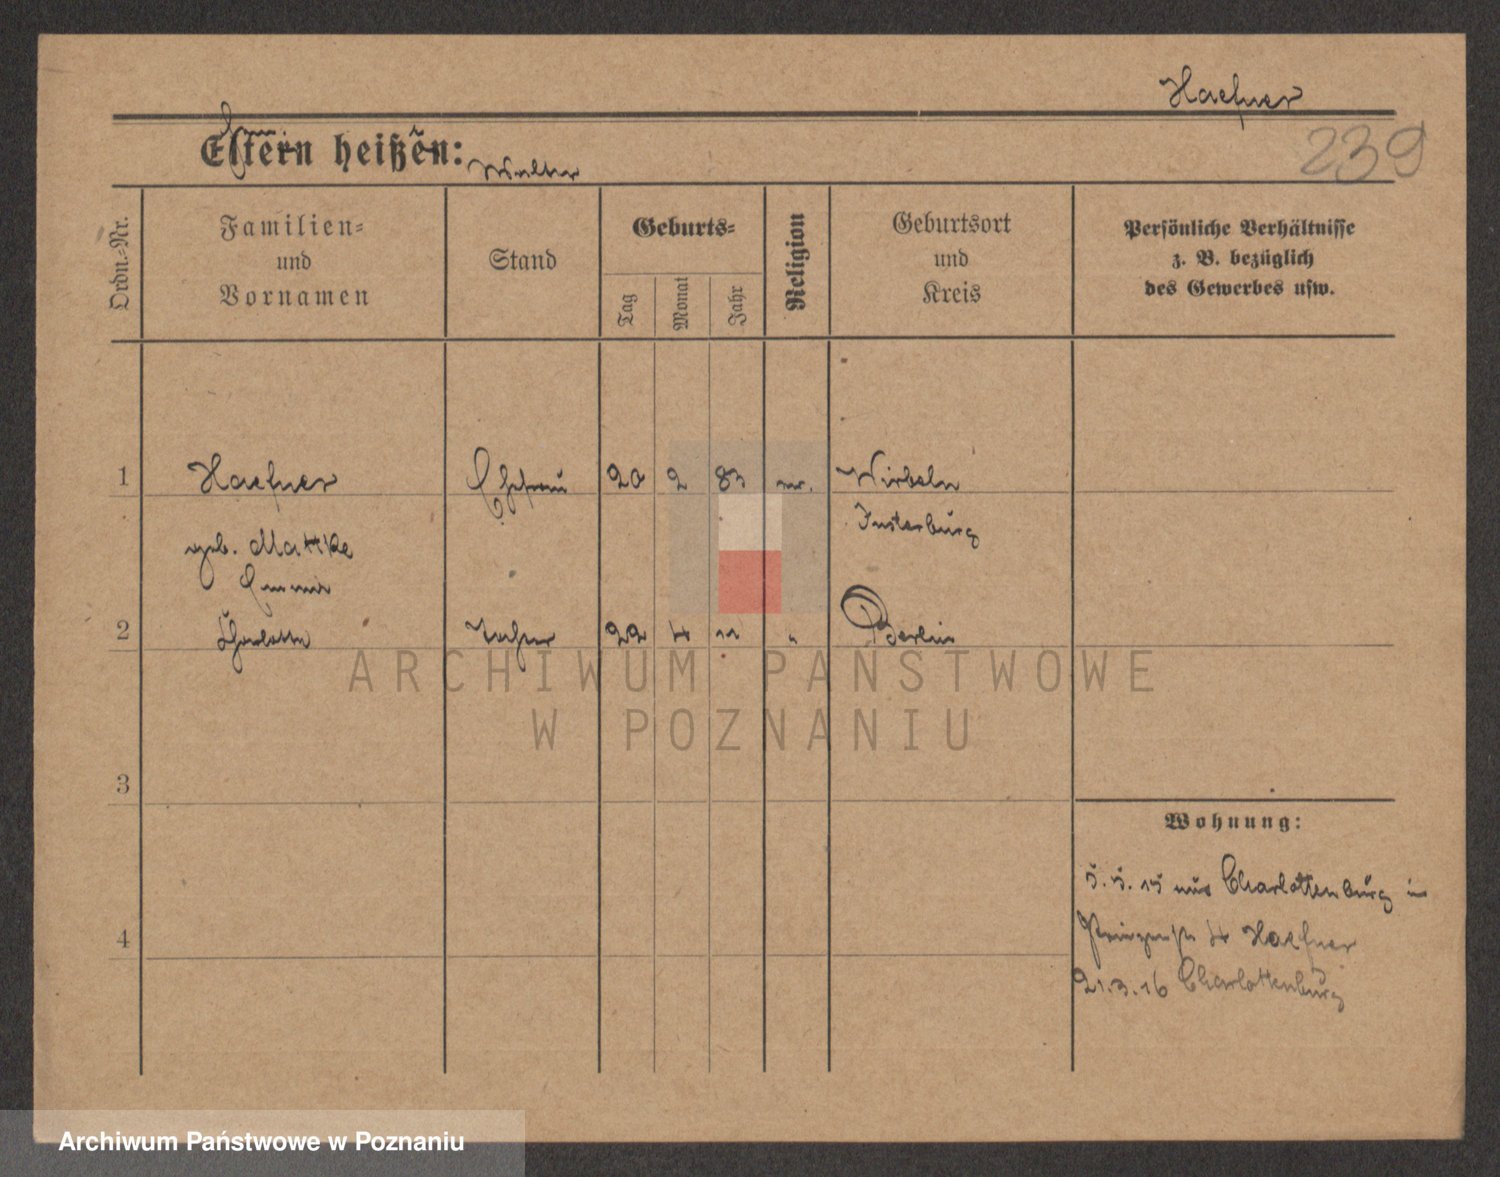 Haefner
239
Eltern heißen:
Walter
Ordn.-Nr.
Familien-
und
Vornamen
Stand
Geburts-
Tag
Monat
Jahr
Religion
Geburtsort
und
Kreis
Persönliche Verhältnisse
z. B. bezüglich
des Gewerbes usw.
1 Haefner Ehefrau 20 2 83 Wirbeln
Insterburg
geb. Mattke
Emma
2 Charlotte Tochter 22 4 11 " Berlin
3
Wohnung:
5.5.15 aus Charlottenburg in
4
Prinzenstr 4 Haefner
21.3.16 Charlottenburg
ARCHIWUM PAŃSTWOWE
W POZNANIU
Archiwum Państwowe w Poznaniu